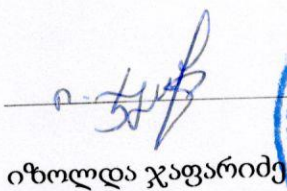 იზოლდა ჯაფარიძე